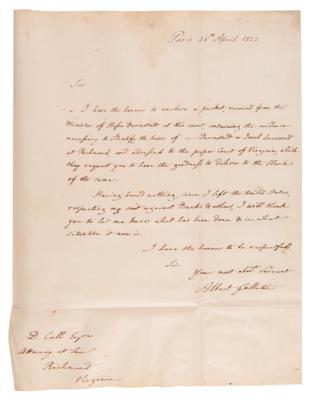 Paris 28th April 1822
Sir
I have the honour to enclose a packet received from the
Minister of Hesse Darmstadt at this court containing the evidence
necessary to identify the heirs of Darmstadt a Jew deceased
at Richmond, and addressed to the proper Court of Virginia, which
they request you to have the goodness to deliver to the Clerk
of the same.
Having heard nothing, since I left the United States,
respecting my suit against Banks & others, I will thank
you to let me know what has been done & in what
situation it now is.
I have the honour to be respectfully
Sir
Your most obedt. Servant
Albert Gallatin
D. Call Esqre
Attorney at Law
Richmond
Virginia